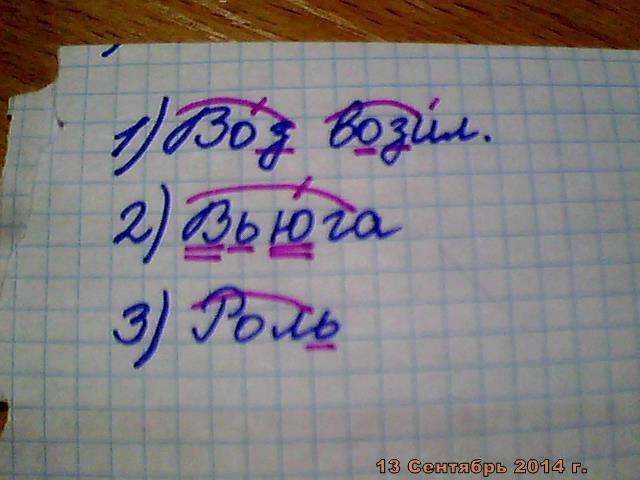 1) Воз возил.
2) Вьюга
3) Роль
13 Сентябрь 2014 г.